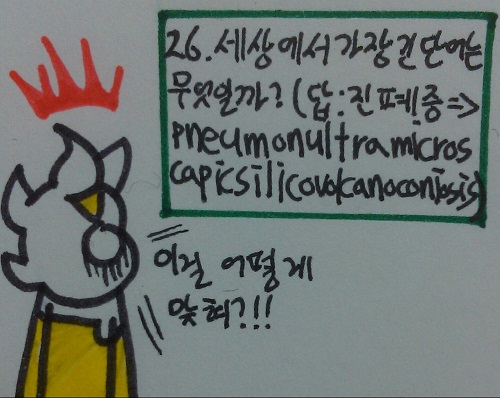 26. 세상에서 가장 긴 단어는
무엇일까? (답: 진폐증 =>
pneumonultramicros
capicsilicovolcanoconiosis)
이걸 어떻게
맞혀?!!